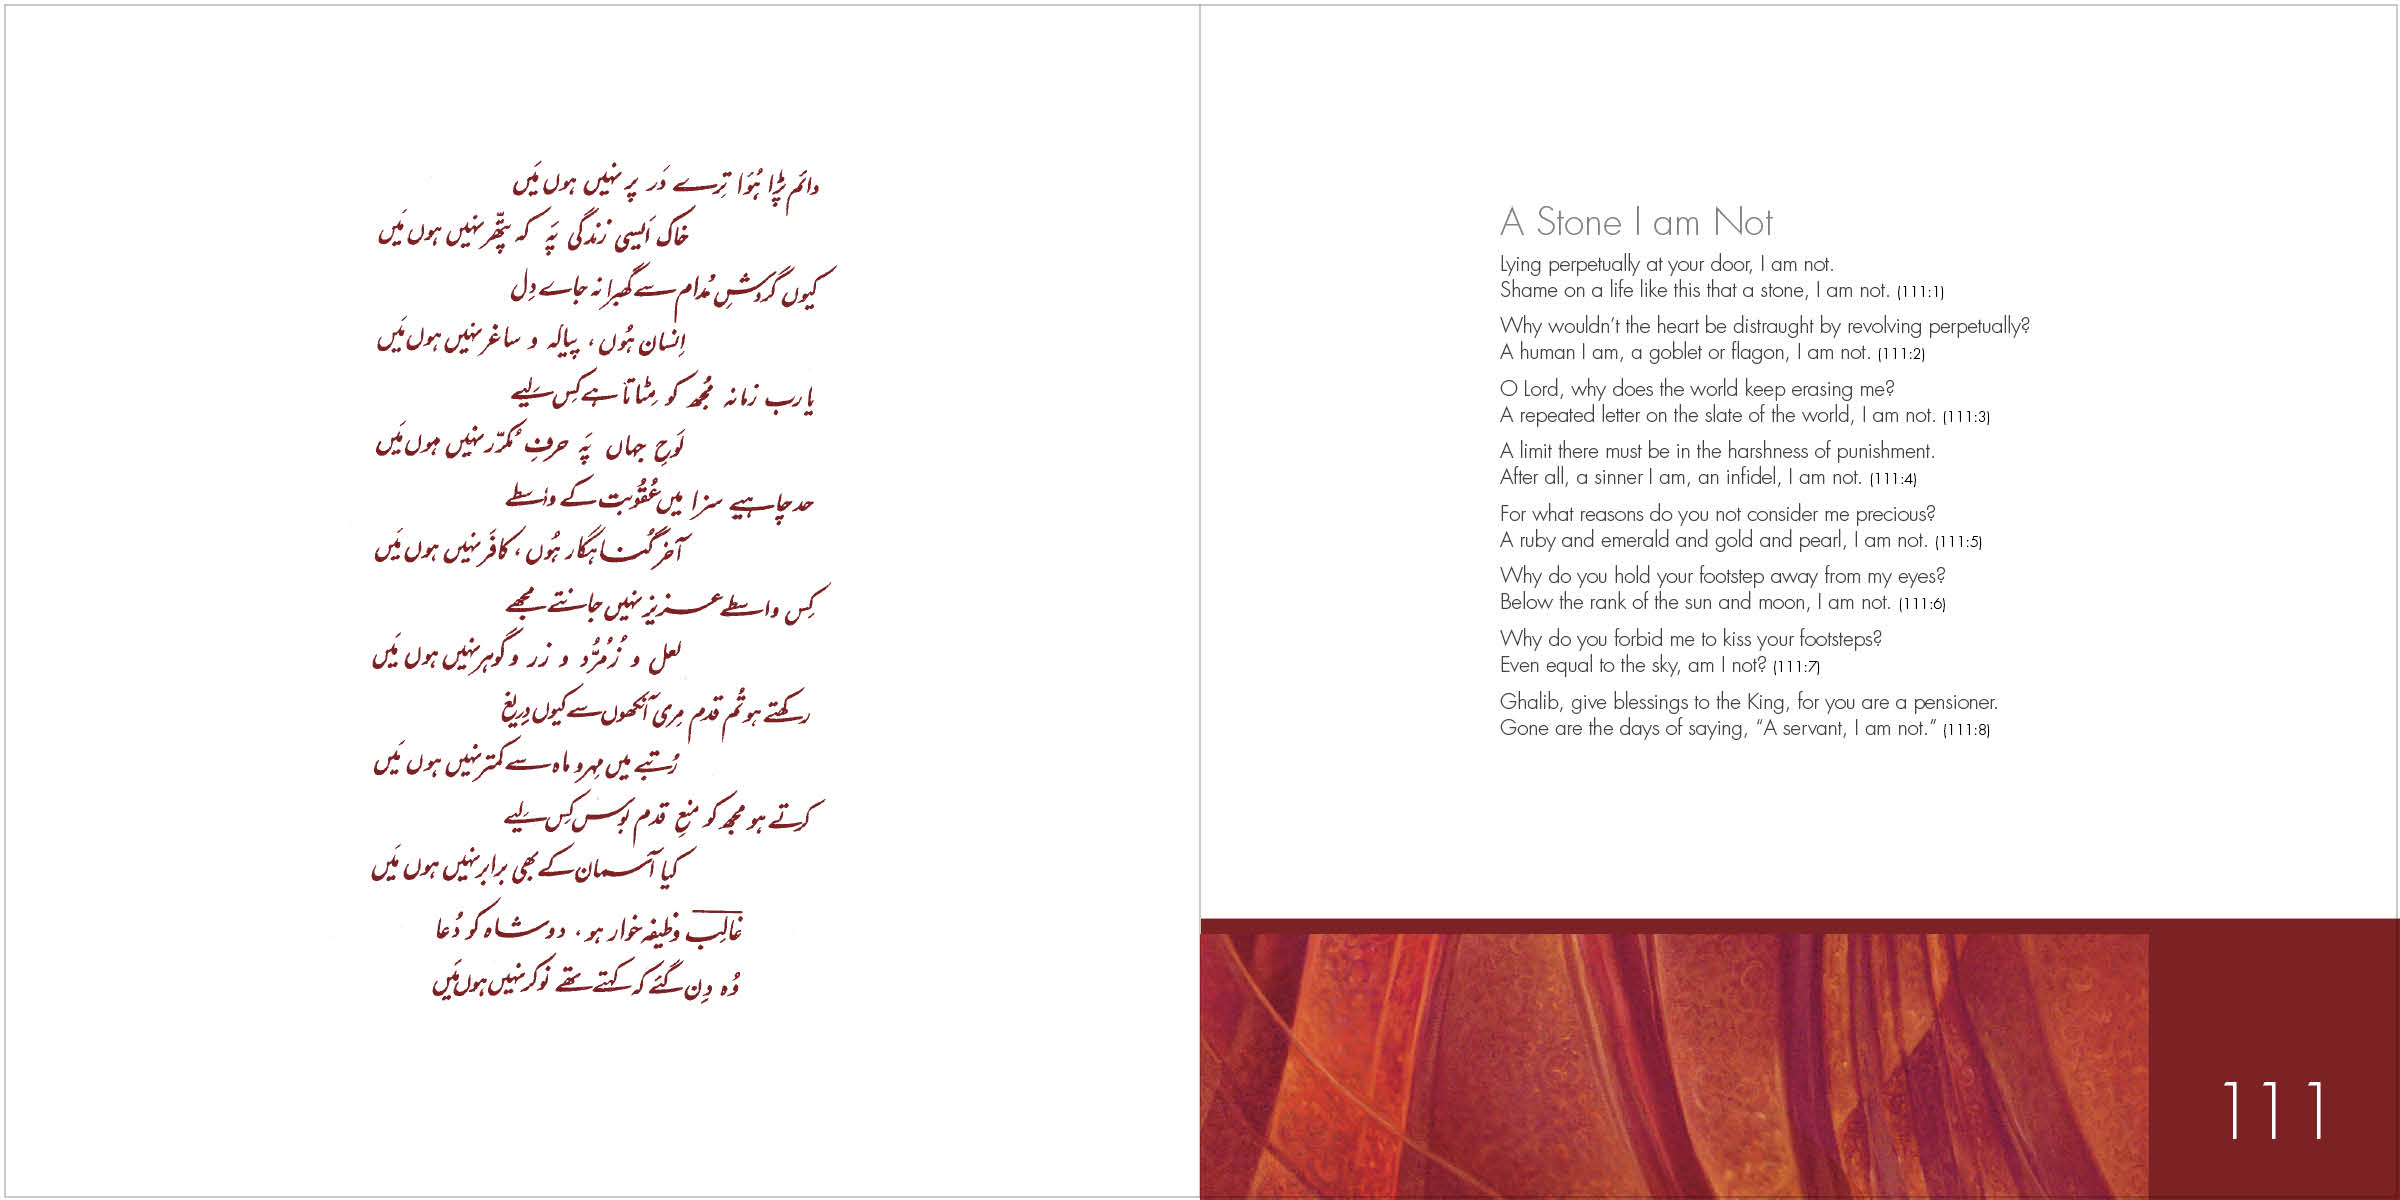 دائم پڑا ہُوَا تِرے دَر پر نہیں ہوں مَیں
خاک اَیسی زندگی پَہ کہ پتّھر نہیں ہوں مَیں
کیوں گردشِ مُدام سے گھبرا نہ جاے دِل
اِنسان ہُوں، پیالہ و ساغر نہیں ہوں مَیں
یا رب زمانہ مُجھ کو مِٹاتا ہے کِس لَیے
لَوحِ جہاں پَہ حرفِ مُکرّر نہیں ہوں مَیں
حد چاہیے سزا میں عُقُوبت کے واسطے
آخر گُناہگار ہُوں، کافَر نہیں ہوں مَیں
کِس واسطے عزیز نہیں جانتے مجھے
لعل و زُمُرُّد و زر و گوہر نہیں ہوں مَیں
رکھتے ہو تُم قدم مِری آنکھوں سے کیوں دِریغ
رُتبے میں مِہر و ماہ سے کمتر نہیں ہوں مَیں
کرتے ہو مجھ کو منعِ قدم بوس کِس لَیے
کیا آسمان کے بھی برابر نہیں ہوں مَیں
غالِب وظیفہ خوار ہو، دو شاہ کو دُعا
وُہ دِن گئے کہ کہتے تھے نَوکر نہیں ہوں مَیں
A Stone I am Not
Lying perpetually at your door, I am not.
Shame on a life like this that a stone, I am not. (111:1)
Why wouldn't the heart be distraught by revolving perpetually?
A human I am, a goblet or flagon, I am not. (111:2)
O Lord, why does the world keep erasing me?
A repeated letter on the slate of the world, I am not. (111:3)
A limit there must be in the harshness of punishment.
After all, a sinner I am, an infidel, I am not. (111:4)
For what reasons do you not consider me precious?
A ruby and emerald and gold and pearl, I am not. (111:5)
Why do you hold your footstep away from my eyes?
Below the rank of the sun and moon, I am not. (111:6)
Why do you forbid me to kiss your footsteps?
Even equal to the sky, am I not? (111:7)
Ghalib, give blessings to the King, for you are a pensioner.
Gone are the days of saying, “A servant, I am not.” (111:8)
111